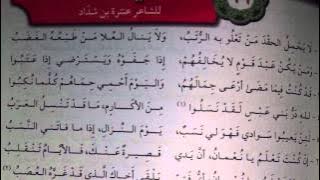 للشاعر عنترة بن شداد
لا يَحْمِلُ الحِقْدَ مَنْ تَعْلُو بِهِ الرُّتَبُ، ولا يَنَالُ العُلا مَنْ طَبْعُهُ الغَضَبُ
وَمَنْ يَكُنْ عَبْدَ قَوْمٍ لا يُخَالِفُهُمْ، إذا جَفَوْهُ وَيَسْتَرْضِي إذا عَتَبُوا
قَدْ كُنْتُ فِيمَا مَضَى أَرْعَى جِمَالَهُمْ، وَاليَوْمَ أَحْمِي حِمَاهُمْ كُلَّمَا نُكِبُوا
للهِ دَرُّ بَنِي عَبْسٍ لَقَدْ نَسَلُوا (١) مِنَ الأَكَارِمِ، مَا قَدْ تَنْسُلُ العَرَبُ
لَئِنْ يَعِيبُوا سَوَادِي فَهْوَ لِي نَسَبٌ، يَوْمَ النِّزَالِ، إذا مَا فَاتَنِي النَّسَبُ
إنْ كُنْتَ تَعْلَمُ يَا نُعْمَانُ، أنَّ يَدِي قَصِيرَةٌ عَنْكَ، فَالأَيَّامُ تَنْقَلِبُ
يَلْقَى أَخَاكَ الَّذِي قَدْ غَرَّهُ العُصَبُ (٢)